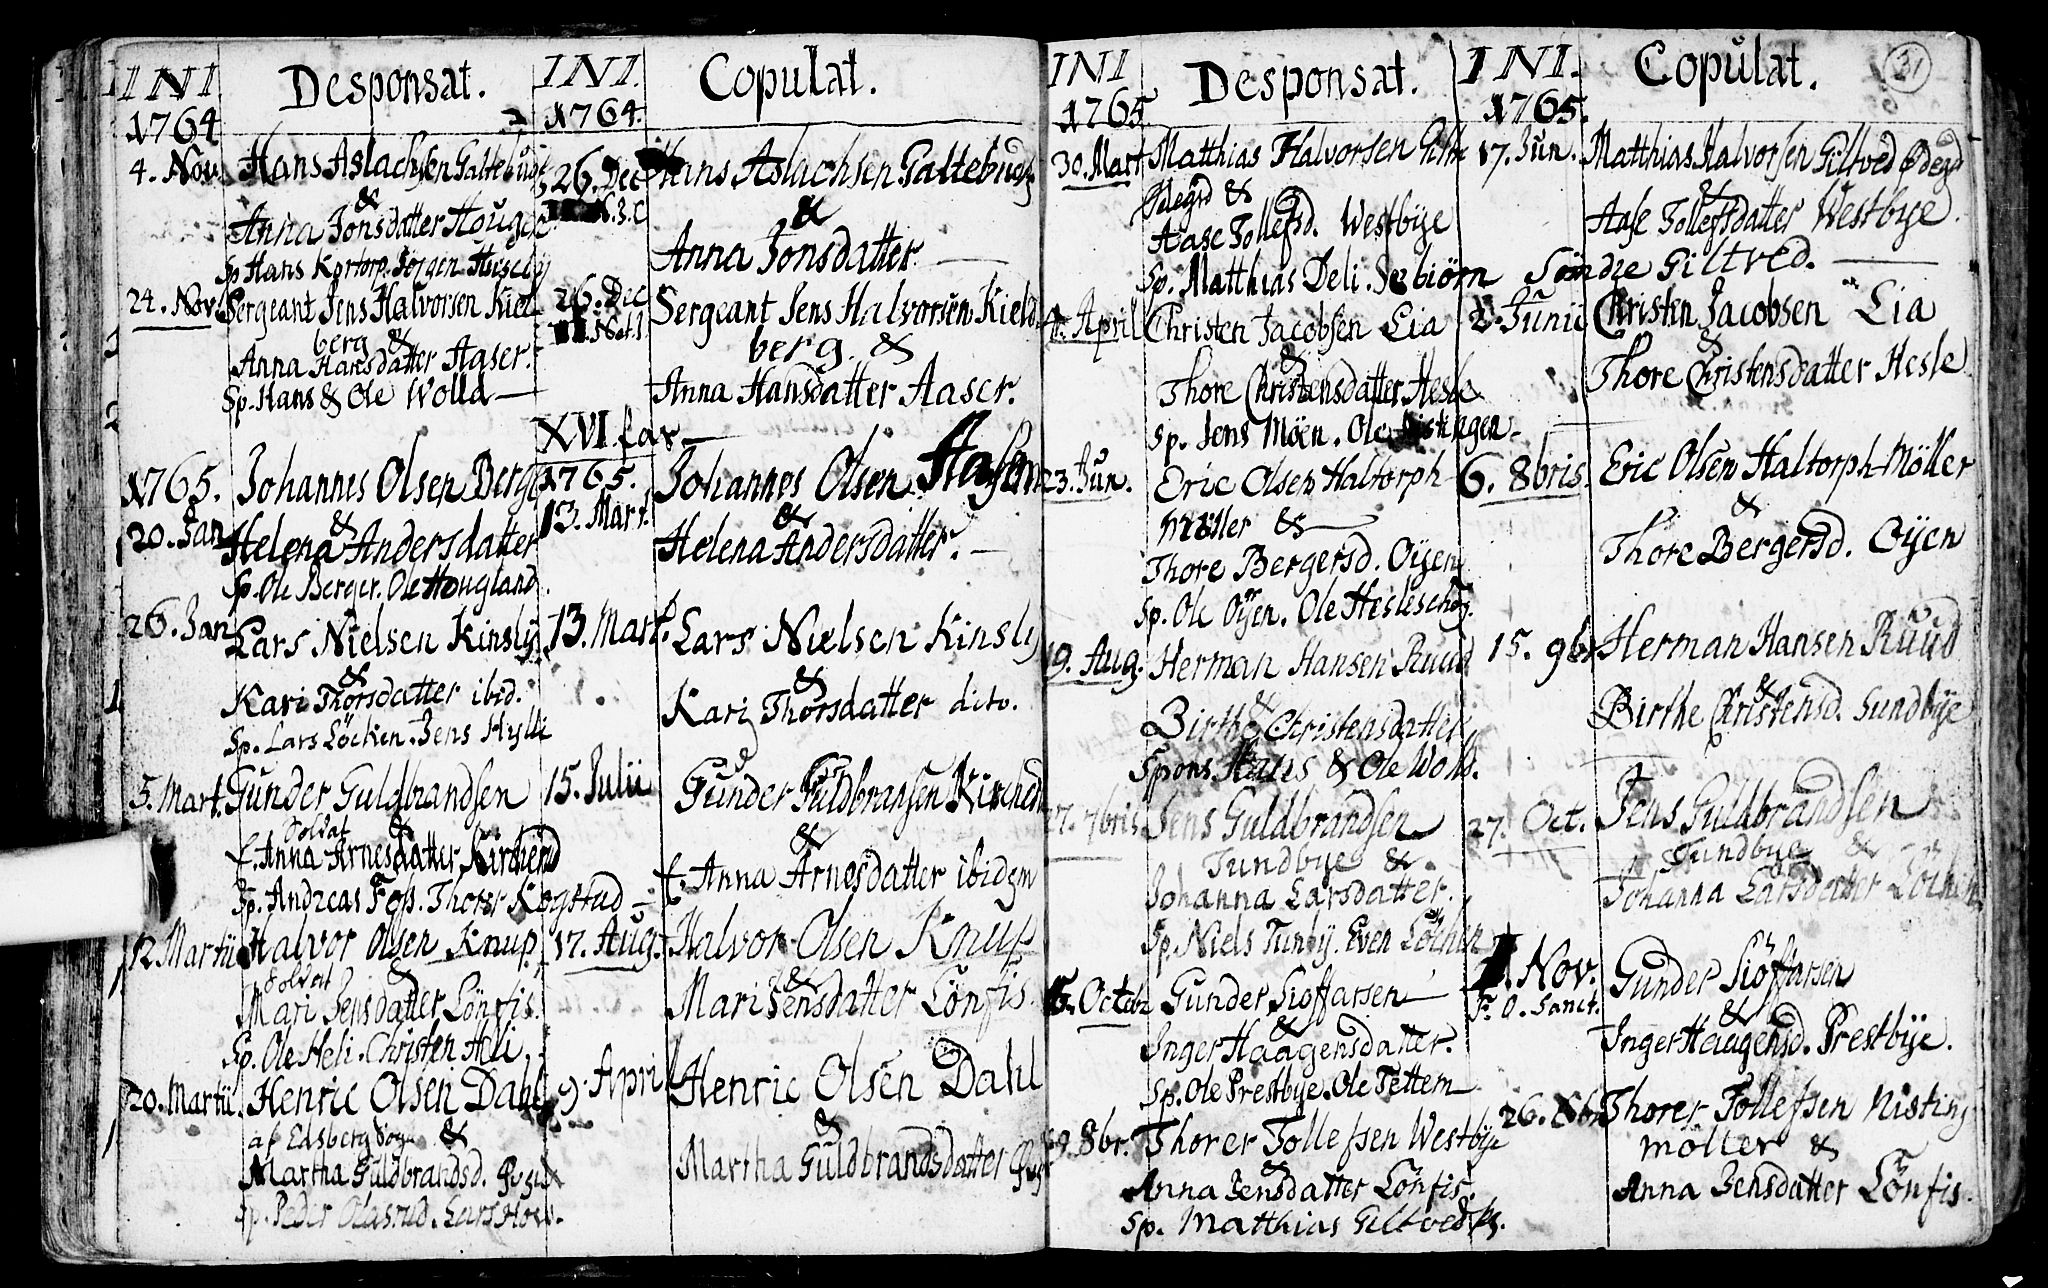 INI
Desponsat.
1764
4. Nov. Hans Aslachsen Galtebuds
&
Anna Jonsdatter Houge
Sp Hans Kortorp. Jörgen Huseby
24. Nov. Sergeant Jens Halvorsen Kiel
berg &
Anna Hansdatter Aaser.
Sp. Hans & Ole Wolla
1765. Johannes Olsen Berge
20. Jan &
Helena Andersdatter
Sp. Ole Berger. Ole Hougland
26. Jan Lars Nielsen Kinsly
&
Kari Thorsdatter ibid.
Sp. Lars Löcken. Jens Hylli
5. Mart. Gunder Guldbrandsen
Soldat &
f. Anna Arnesdatter Kircherud
Sp. Andreas Foss. Thorer Kogstad
12. Martii Halvor Olsen Knup
Soldat &
Mari Jensdatter Lönfis.
Sp. Ole Heli. Christen Heli
20. Martii. Henric Olsen Dahl
af Edsberg Sogn &
Martha Guldbrandsd.
Sp. Peder Olasrud. Lars
INI.
Copulat.
1764.
26. Dec Hans Aslachsen Galtebuds
N. 3. C &
Anna Jonsdatter.
26. Dec Sergeant Jens Halvorsen Kield
berg. &
Anna Hansdatter Aaser.
XVI. Par
1765. Johannes Olsen
13. Mart. &
Helena Andersdatter.
13. Mart. Lars Nielsen Kinsly
&
Kari Thorsdatter dito.
15. Julii Gunder Guldbransen Kircherud
&
f. Anna Arnesdatter ibidem
17. Aug. Halvor Olsen Knup
&
Mari Jensdatter Lönfis.
9. April Henric Olsen Dahl
&
Martha Guldbrandsdatter
INI
Desponsat.
1765.
30. Mart Matthias Halvorsen Gilt
Ødegrd &
Aase Tollefsd. Westbye
Sp. Matthias Deli. Sebiörn Söndre Giltved.
April Christen Jacobsen Lia
&
Thore Christensdatter Hesle
Sp. Jens Möen. Ole Nistingen
23. Jun. Eric Olsen Haltorph
Möller &
Thore Bergersd. Oyen
Sp. Ole Oyen. Ole Hesleschog.
19. Aug. Herman Hansen Ruud
&
Birthe Christensdatter
Spons. Hans & Ole Wolla.
27. 7bris Jens Guldbrandsen
Tundbye &
Johanna Larsdatter.
Sp. Niels Tunby. Even Löchen
6. Octobr Gunder Sioffarsen
&
Inger Haagensdatter.
Sp. Ole Prestbye. Ole Tettem
8br. Thorer Tollefsen Westbye
&
Anna Jensdatter Lönfis.
Sp. Matthias Giltved
INI.
Copulat.
31
1765.
17. Jun. Matthias Halvorsen Giltved Ødegrd
&
Aase Tollefsdatter Westbye.
2. Junii Christen Jacobsen Lia
&
Thore Christensdatter Hesle
6. 8bris. Eric Olsen Haltorph Möller
&
Thore Bergersd. Oyen
15. 9br Herman Hansen Ruud
&
Birthe Christensd. Sundbye
27. Oct. Jens Guldbrandsen
Tundbye &
Johanna Larsdatter Löchen
1. Nov. Gunder Sioffarsen
F. O. Sanct. &
Inger Haagensd. Prestbye.
26. Thorer Tollefsen Nisting
möller &
Anna Jensdatter Lönfis.